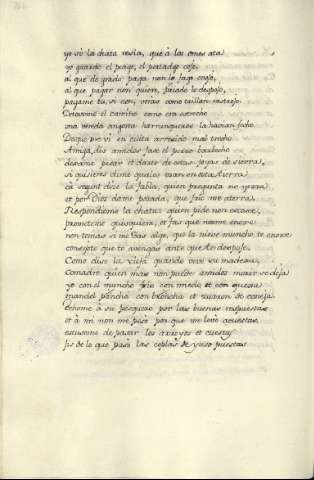 yo so la chata resia, que á las omes ata
yo guardo el paage, el portadgo cojo,
al que de grado paga non le fago enojo,
al que pagar non quier, priado le despojo,
pagame tu, si non, veras como trillan rastrojo.
Detovome el camino como era estrecho
una vereda angosta harruqueros la havian fecho
Desque me vi en cuita arrezido mal trecho
Amiga, dis, amidos fase el perro barbecho
dexame pasar et darte he cosas joyas de sierra,
si quisieres dime quales usan en esta tierra
ca segunt dise la fabla, quien pregunta no yerra
et por Dios dame posada, que frio me aterra.
Respondiome la chata: quien pide non escoxe,
prometeme quisquiera, et fas que no me enoxe
non temas si mi das algo, que la nieve muncho te enoxe
consejote que te avengas ante que te despoje.
Como dise la vieja quando beve su madexa,
Comadre quien mas non puede amidos morir se dexa
yo con el muncho frio con miedo et con quexa
mandel pancha con broncha et zurron de coneja.
Echome á su pescuezo por las buenas respuestas
et á mi non me pesó por que me levó acuestas,
escusome de pasar los arroyos et cuestas
fis de lo que pasó las coplas de yuso puestas